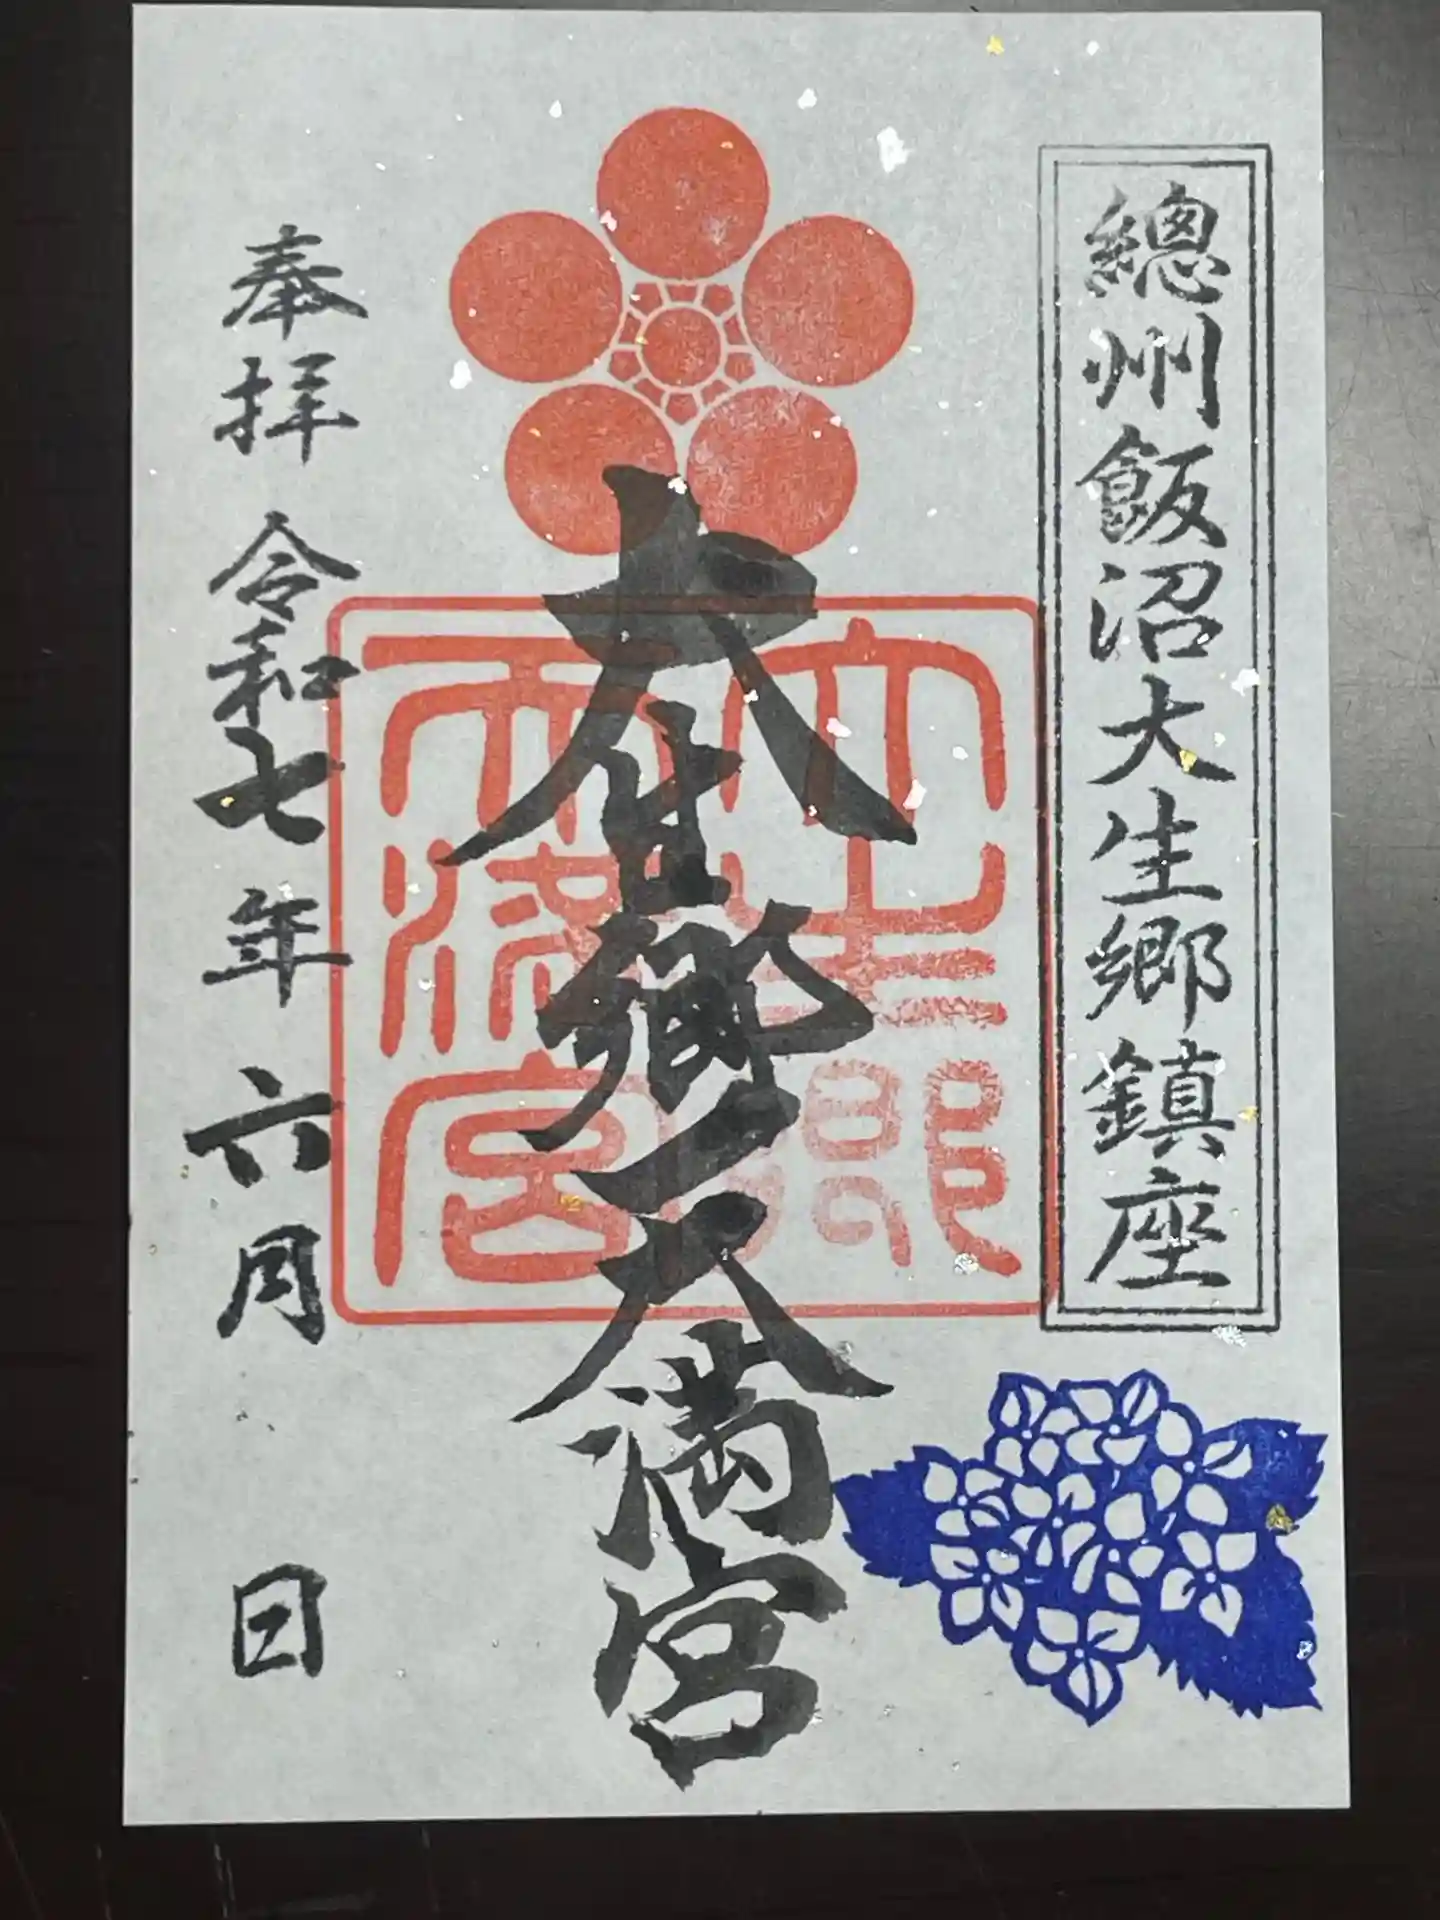 總州飯沼大生郷鎮座
大生郷天満宮
大生郷
天満宮
奉拝 令和七年六月 日